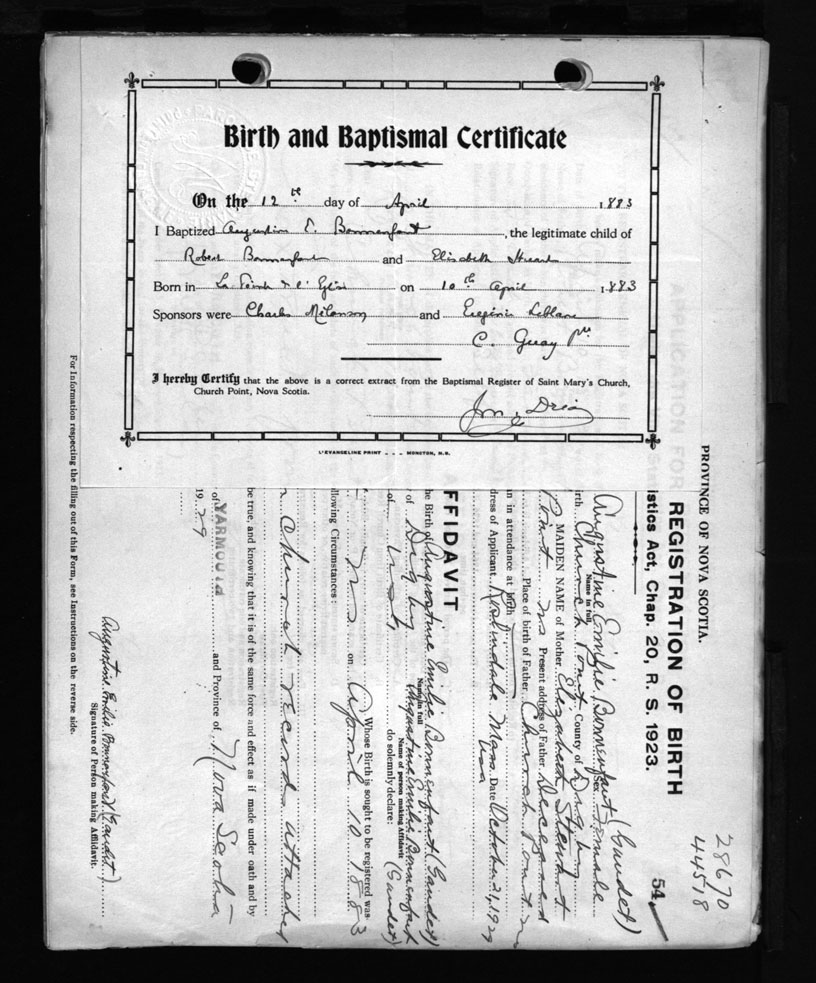 Birth and Baptismal Certificate
On the 12th day of April 1883
I Baptized Augustin E. Bonnenfant, the legitimate child of
Robert Bonnenfant and Elisabeth
Born in La Pointe de l'Eglise on 10th April 1883
Sponsors were Charles Melanson and Eugénie Leblanc
C. Gueay
I hereby Certify that the above is a correct extract from the Baptismal Register of Saint Mary's Church,
Church Point, Nova Scotia.
L'EVANGELINE PRINT - - - MONCTON, N.B.
28670
44518
PROVINCE OF NOVA SCOTIA.
54
REGISTRATION OF BIRTH
istics Act, Chap. 20, R. S. 1923.
Augustine Emilie Bonnenfant (Gaudet)
Name in full Sex Female
irth Church Point County of Digby
MAIDEN NAME of Mother Elizabeth Stewart
Point NS Present address of Father Deceased
Place of birth of Father Church Point
n in attendance at birth
dress of Applicant Roslindale Mass. Date October 21, 1929
USA
FFIDAVIT
he Birth of Augustine Emilie Bonnenfant (Gaudet)
Name in full
Augustine Emilie Bonnenfant (Gaudet)
of Digby
Name of person making Affidavit
of do solemnly declare:
Whose Birth is sought to be registered was
NS on April 10 1883
llowing Circumstances:
Church records attached
be true, and knowing that it is of the same force and effect as if made under oath and by
of YARMOUTH and Province of Nova Scotia
19 29
Augustine Emilie Bonnenfant (Gaudet)
Signature of Person making Affidavit.
For Information respecting the filling out of this Form, see Instructions on the reverse side.